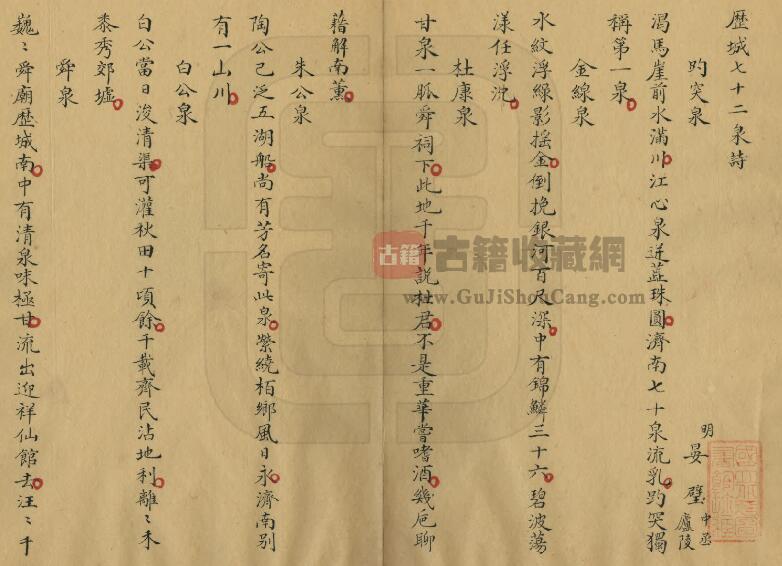 歷城七十二泉詩
明 晏璧 中丞 廬陵
趵突泉
渴馬崖前水滿川江心泉迸蕋珠圓濟南七十泉流乳趵突獨
稱第一泉
金線泉
水紋浮綠影搖金倒挽銀河百尺深中有錦鱗三十六碧波蕩
漾任浮沉
杜康泉
甘泉一脈舜祠下此地千年説杜君不是重華嘗嗜酒幾卮聊
藉解南薰
朱公泉
陶公已泛五湖船尚有芳名寄此泉縈繞栢鄉風日永濟南别
有一山川
白公泉
白公當日浚清渠可灌秋田十頃餘千載齊民沾地利離〻禾
黍秀郊墟
舜泉
巍〻舜廟歷城南中有清泉味極甘流出迎祥仙館去汪〻千
古籍
古籍收藏網
www.GuJiShouCang.com